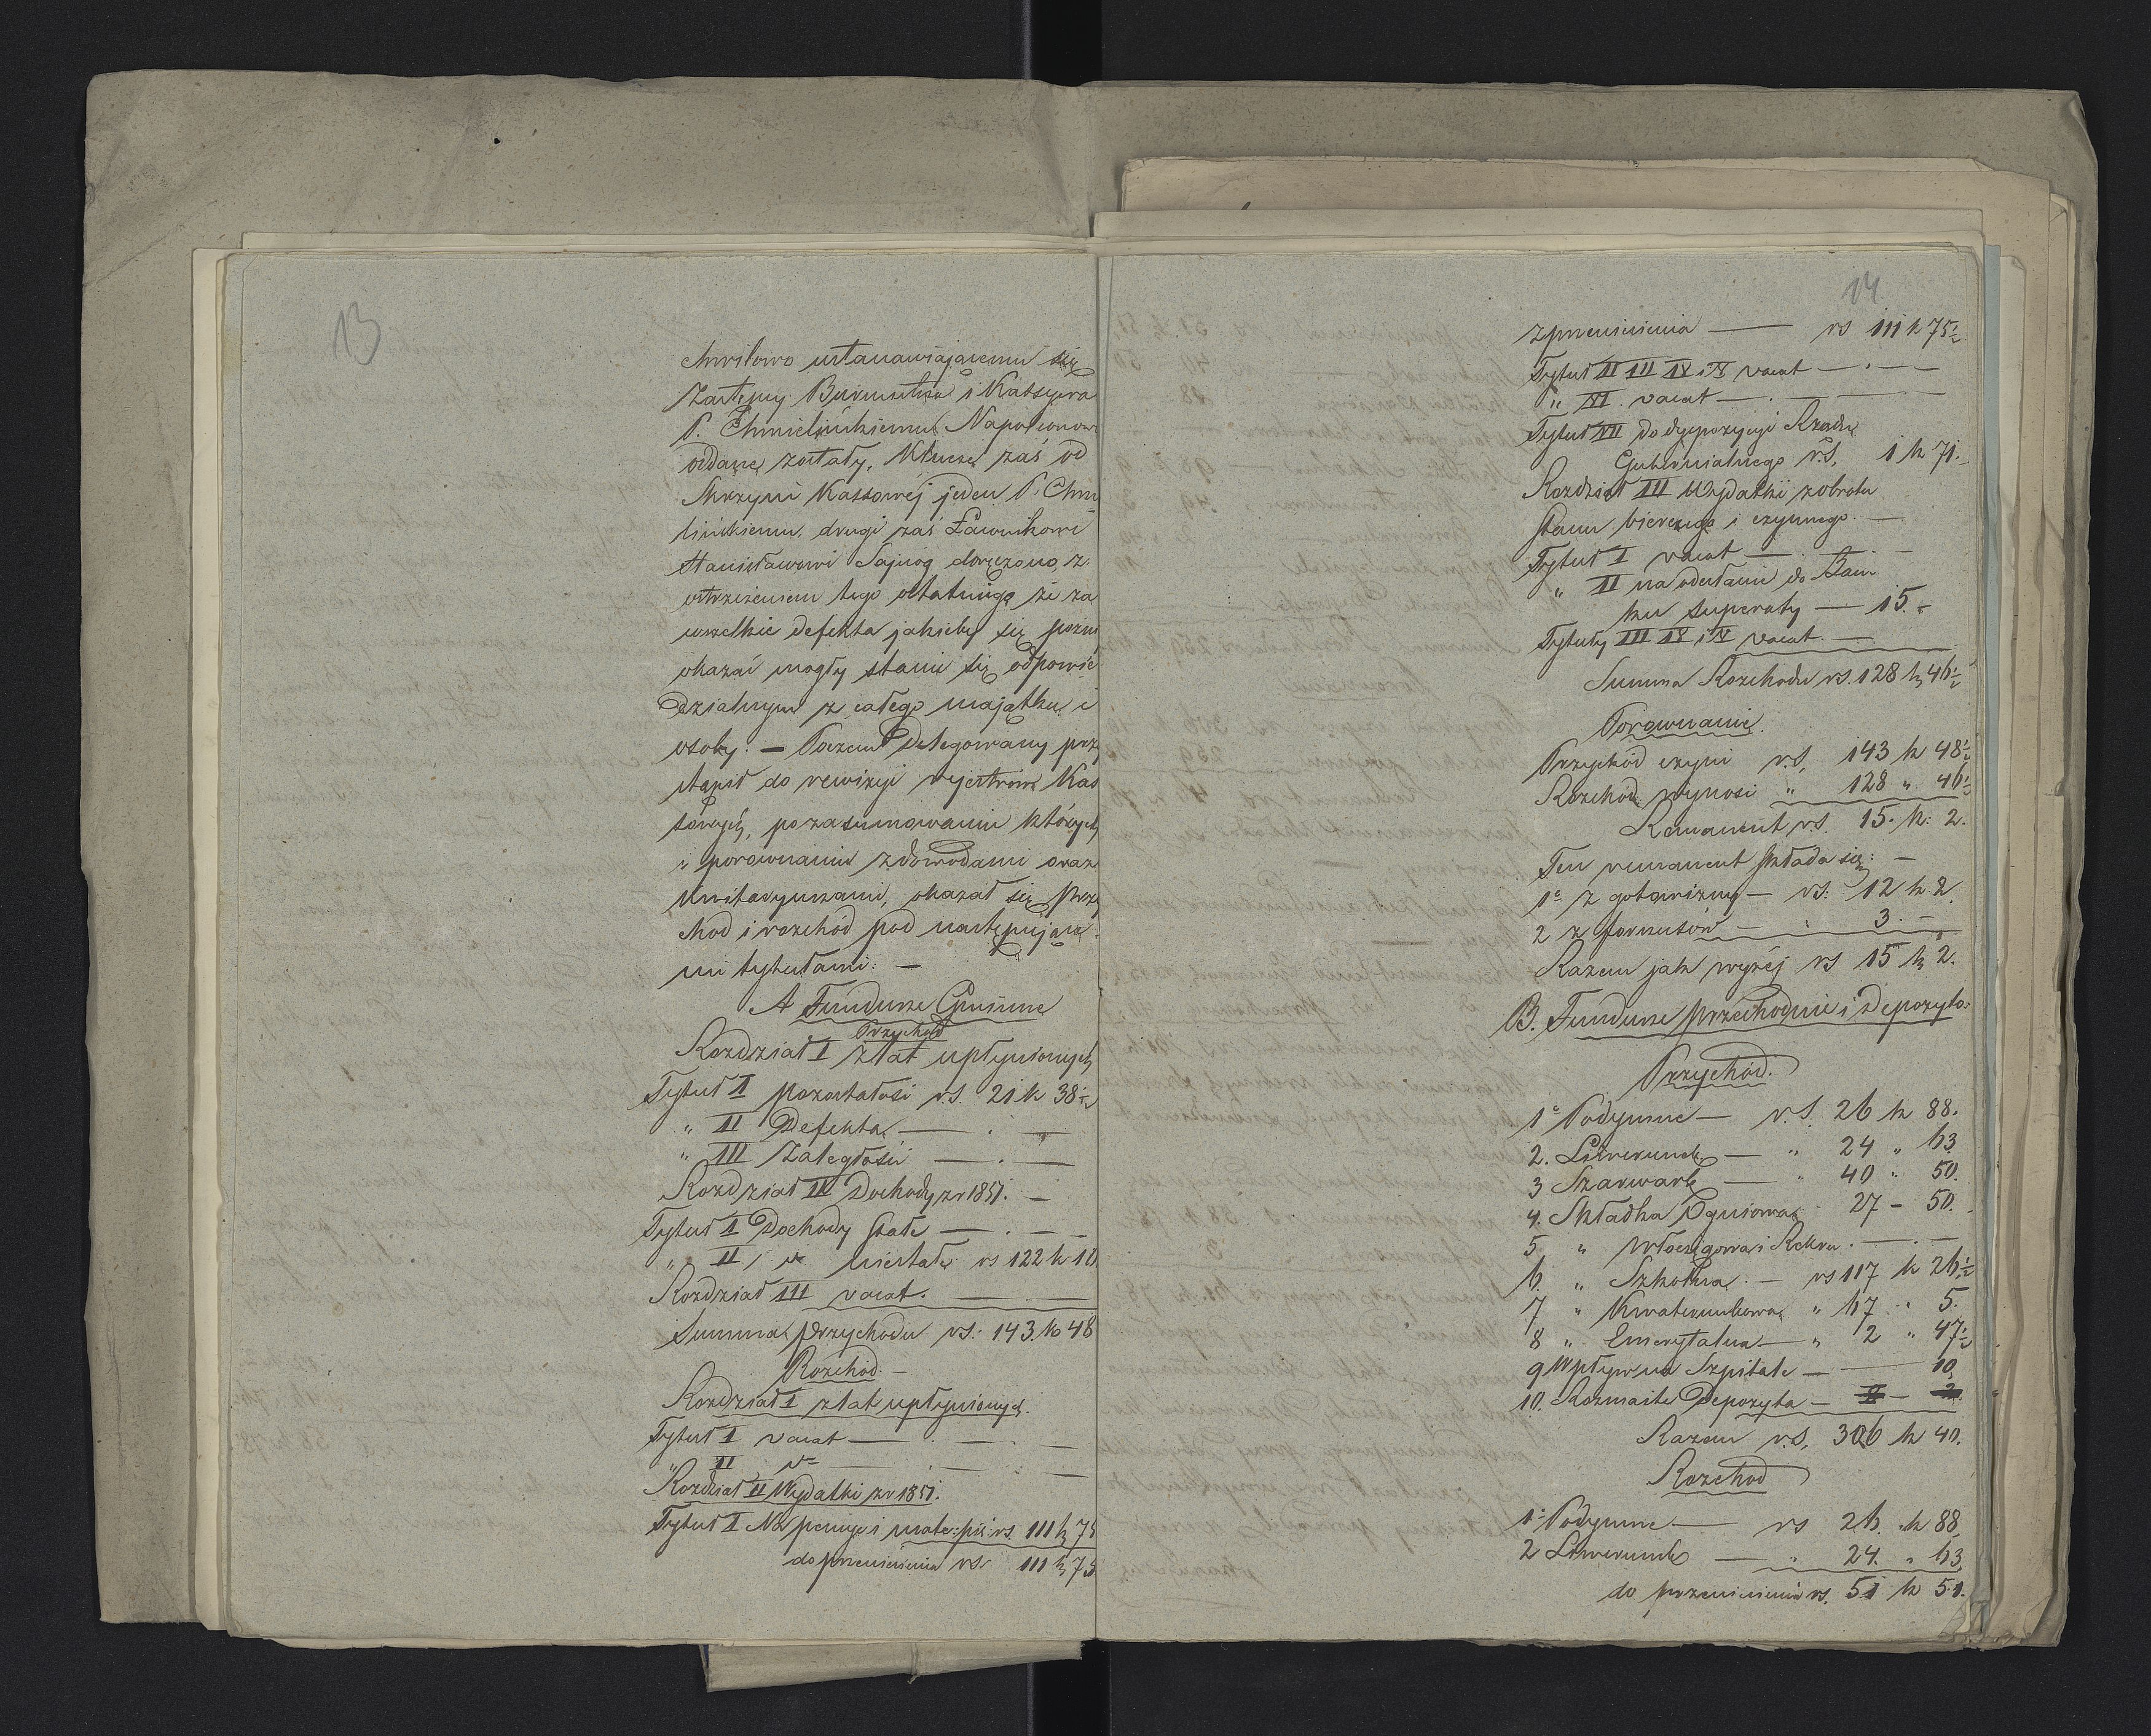 13
chwilowo ustanawiającemu się
Zastępcy Burmistrza i Kassyera
P. Chmielińskiemu Napoleonow
oddane zostały, Klucze zaś od
Skrzyni Kassowéj jeden P. Chmi
lińskiemu, drugi zaś Ławnikowi
Stanisławowi Sajnóg doręczono, z
ostrzeżeniem tego ostatniego że za
wszelkie defekta jakieby się pozni
okazać mogły stanie się odpowie
dzialnym z całego majątku i
osoby: — Poczem Delegowany przy
stąpił do rewizyi rejestrów Kas
sowych, po zasumowaniu których
i porównaniu z dowodami oraz
Kwitaryuszami, okazał się Przy
chod i rozchód pod następujące
mi tytułami: —
A Fundusze Gminne
Przychod
Rozdział I z lat upłynionych
Tytuł I pozostałości rs. 21 k 38½
" II Defekta — . —
" III Zaległości — . —
Rozdział II Dochody z r 1851. —
Tytuł I Dochody stałe — . — —
" II / do niestałe rs 122 k 10
Rozdział III vacat. — —
Summa przychodu rs: 143 k 48
Rozchód. —
Rozdział I z lat upłynionych.
Tytuł I vacat — . — . —
" II do — . — —
Rozdział II Wydatki z r 1851.
Tytuł I Na pensye i mater: piś: rs. 111 k 75
do przeniesienia rs 111 k 75
14
z przeniesienia — rs 111 k 75½
Tytuł II III IV i V vacat — . —
" VI vacat — . —
Tytuł VII do dyspozycyi Rządu
Gubernialnego r.S. 1 k 71.
Rozdział III Wydatki z obrotu
stanu biernego i czynnego. —
Tytuł I vacat — . — . —
" II na odesłanie do Ban
ku superaty — 15. "
Tytuły III IV i V vacat. —
Summa Rozchodu rs. 128 k 46½
Porównanie.
Przychód czyni r.S. 143 k 48½
Rozchód wynosi " 128 " 46½
Remanent r.S. 15. k. 2.
Ten remanent składa się: —
1o z gotowizny — rs: 12 k 2.
2 z forszusów — : 3. —
Razem jak wyżéj rs 15 k 2.
B. Fundusze przechodnie i Depozyto:
Przychód.
1o Podymne — r.S. 26 k 88.
2. Liwerunek — " 24 " 63
3 Szarwark — " 40 " 50.
4. Składka Ogniowa 27 - 50.
5 " włóczęgowa i Rekru . — . —
6 " Szkolna . — rs 117 k 26½
7 " Kwaterunkowa " 67 " 5.
8 " Emerytalna — " 2 " 47½
9 Wpływ na Szpitale — — 10
10. Rozmaite Depozyta —
Razem r.S. 306 k 40.
Rozchod
1o Podymne — rs 26. k 88
2 Liwerunek — " 24. " 63
do przeniesienia rs. 51 k 51.